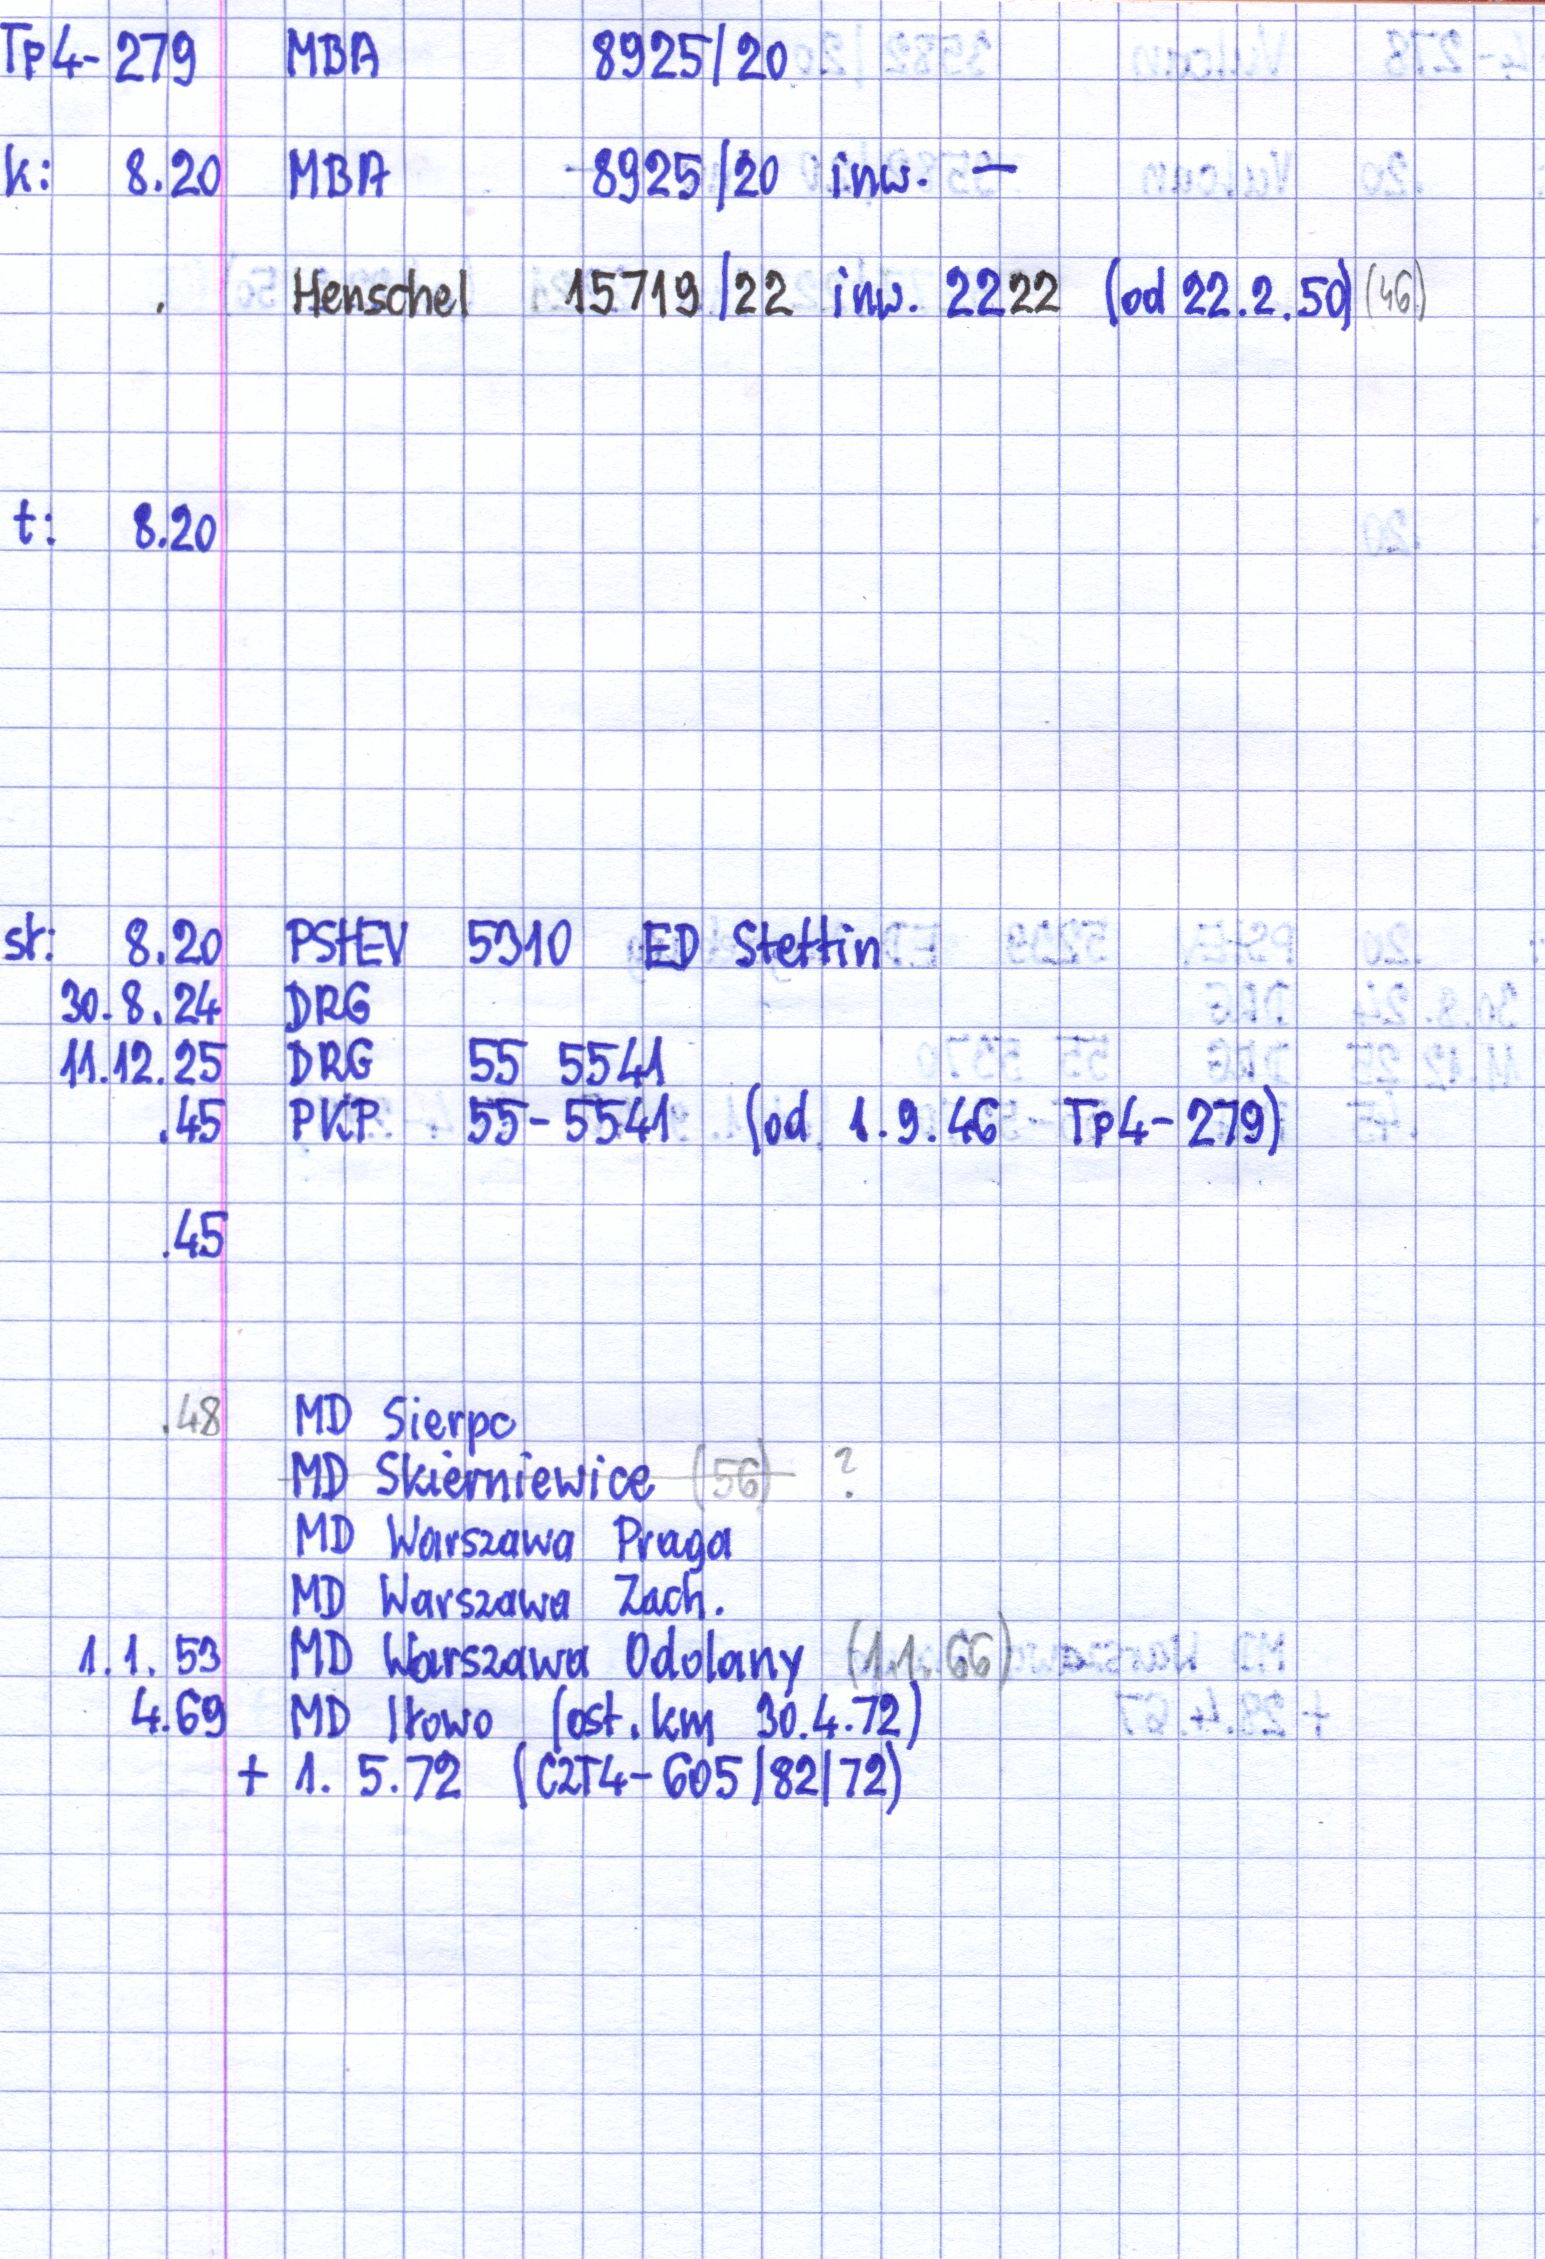 Tp4-279 MBA 8925/20
k: 8.20 MBA 8925/20 inw. —
. Henschel 15719/22 inw. 2222 (od 22.2.50) (46)
t: 8.20
st: 8.20 PStEV 5310 ED Stettin
30.8.24 DRG
11.12.25 DRG 55 5541
.45 PKP 55-5541 (od 1.9.46 Tp4-279)
.45
.48 MD Sierpc
MD Skierniewice (56) ?
MD Warszawa Praga
MD Warszawa Zach.
1.1.53 MD Warszawa Odolany (1.1.66)
4.69 MD Iłowo (ost. km 30.4.72)
+ 1.5.72 (C2T4-605/82/72)